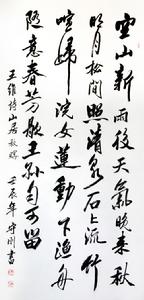 空山新雨後天氣晚来秋
明月松間照清泉石上流竹
喧歸浣女蓮動下渔舟
随意春芳歇王孫自可留
王維詩山居秋暝
壬辰年守刚書